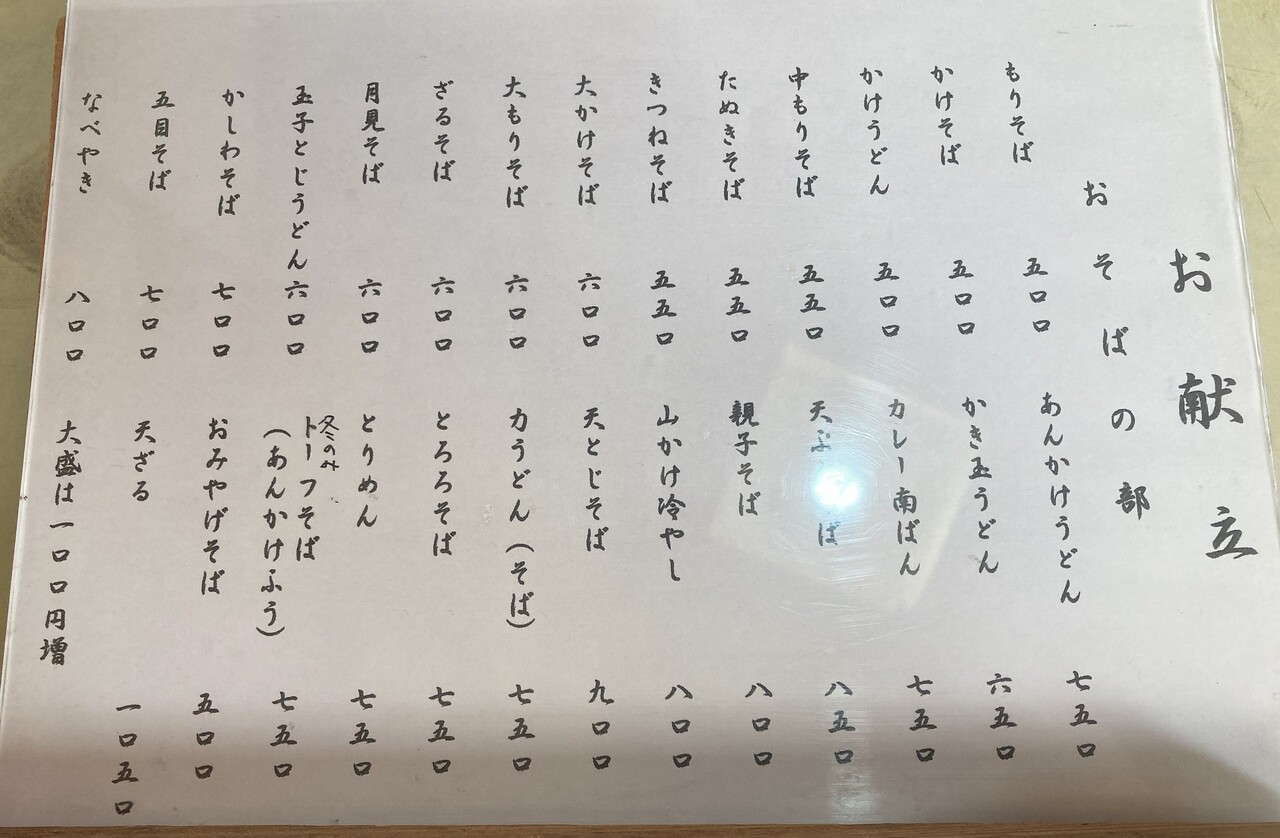 お献立
おそばの部
もりそば 五〇〇
かけそば 五〇〇
かけうどん 五〇〇
中もりそば 五五〇
たぬきそば 五五〇
きつねそば 五五〇
大かけそば 六〇〇
大もりそば 六〇〇
ざるそば 六〇〇
月見そば 六〇〇
玉子とじうどん 六〇〇
かしわそば 七〇〇
五目そば 七〇〇
なべやき 八〇〇
あんかけうどん 七五〇
かき玉うどん 六五〇
カレー南ばん 七五〇
天ぷ ば 八五〇
親子そば 八〇〇
山かけ冷やし 八〇〇
天とじそば 九〇〇
力うどん(そば) 七五〇
とろろそば 七五〇
とりめん 七五〇
冬のみ
トーフそば 七五〇
(あんかけふう)
おみやげそば 五〇〇
天ざる 一〇五〇
大盛は一〇〇円増